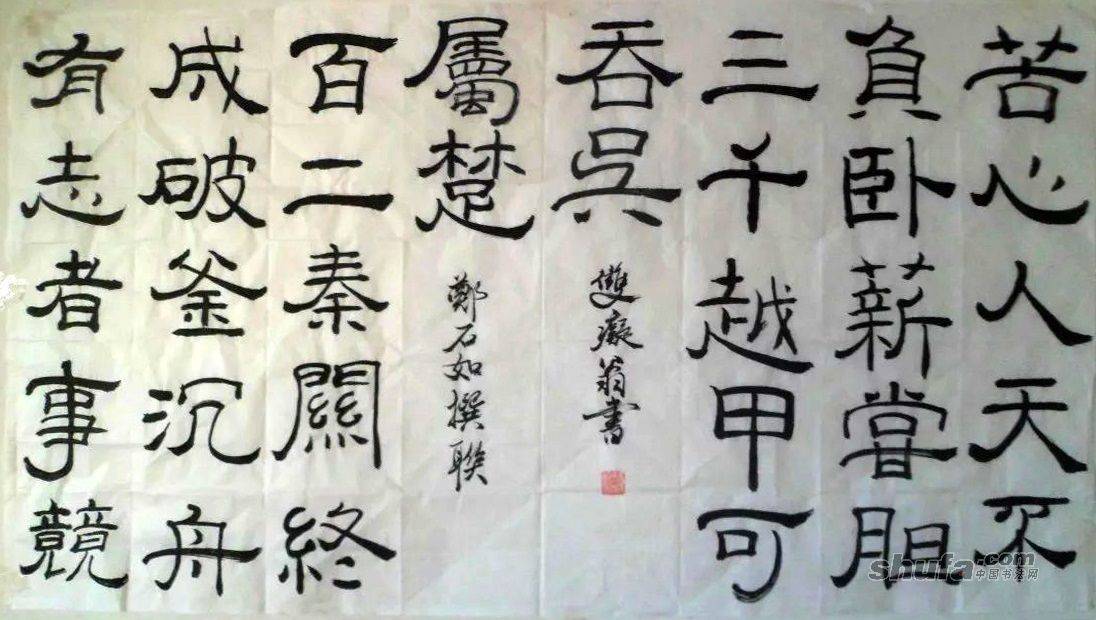 苦心人天不
負卧薪嘗胆
三千越甲可
吞吳
雙癡翁書
有志者事競
成破釜沉舟
百二秦關終
屬楚
鄭石如撰聯
shufa.com
中国书法网